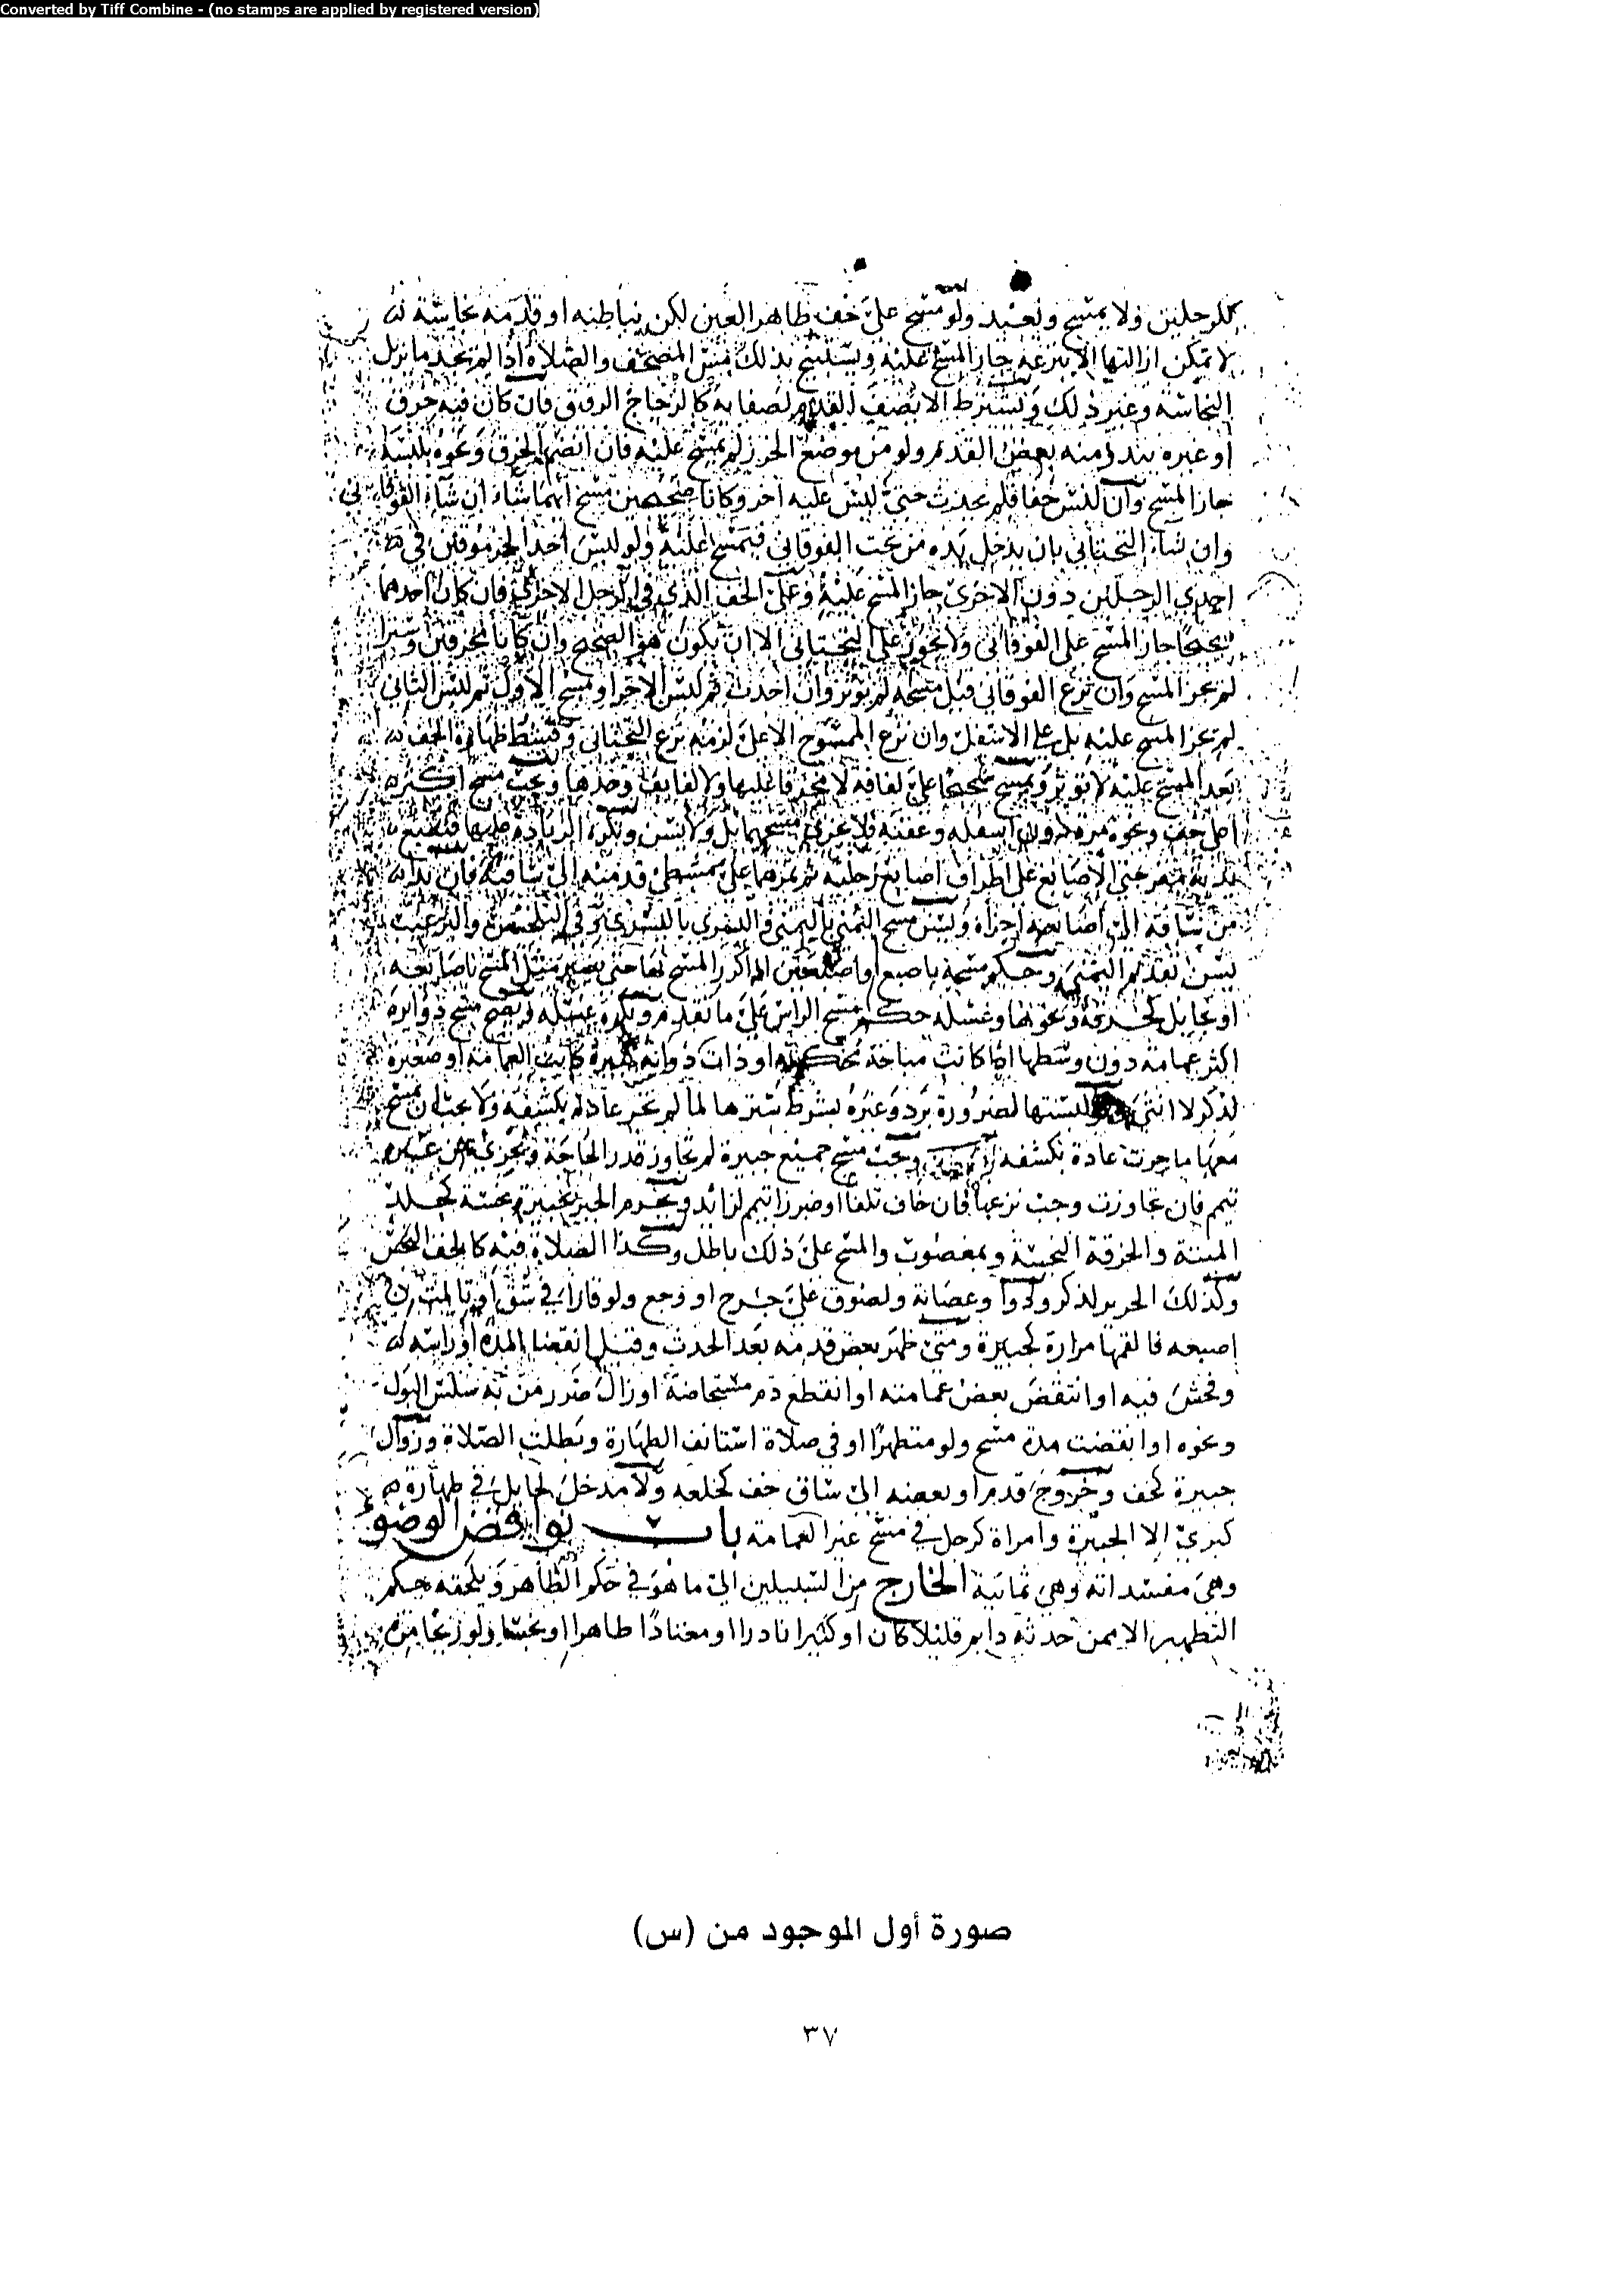 Converted by Tiff Combine - (no stamps are applied by registered version)
للرجلين ولا يمسح ويعيد ولو مسح على خف طاهر العين لكن بباطنه او قدمه نجاسة
لا يمكن ازالتها الا بنزعه جاز المسح عليه ويستبيح بذلك مس المصحف والصلاة اذا لم يجد ما يزيل
النجاسة وغير ذلك ويشترط الا يصف القدم لصفائه كالزجاج الرقيق فان كان فيه خرق
او غيره يبدو منه بعض القدم ولو من موضع الخرز لم يمسح عليه فان انضم الخرق ونحوه بلبسه
جاز المسح وان لبس خفا فلم يحدث حتى لبس عليه اخر وكانا صحيحين مسح ايهما شاء ان شاء الفوقاني
وان شاء التحتاني بان يدخل يده من تحت الفوقاني فيمسح عليه ولو لبس احد الجرموقين في
احدى الرجلين دون الاخرى جاز المسح عليه وعلى الخف الذي في الرجل الاخرى فان كان احدهما
صحيحا جاز المسح على الفوقاني ولا يجوز على التحتاني الا ان يكون هو الصحيح وان كانا مخرقين وسترا
لم يجز المسح وان نزع الفوقاني قبل مسحه لم يؤثر وان احدث ثم لبس الاخر او مسح الاول ثم لبس الثاني
لم يجز المسح عليه بل على الاسفل وان نزع الممسوح الاعلى لزمه نزع التحتاني وقشط ظهارة الخف
بعد المسح عليه لا يؤثر ويمسح صحيحا على لفافة لا مخرقا عليها ولا لفايف وحدها ويجب مسح اكثر
اعلى خف ونحوه مرة دون اسفله وعقبه فلا يجزي مسحهما بل ولا يسن وتكره الزيادة عليها فيضع
يديه مفرجتي الاصابع على اطراف اصابع رجليه ثم يمرهما على مشطي قدميه الى ساقيه فان بدا
من ساقه الى اصابعه اجزاه ويسن مسح اليمنى باليمنى واليسرى باليسرى وفي التلخيص والترغيب
يسن تقديم اليمنى وحكم مسحه باصبع او اصبعين اذا كرر المسح بها حتى يصير مثل المسح باصابعه
او بحايل كخرقة ونحوها وغسله حكم مسح الراس على ما تقدم ويكره غسله ويصح مسح دوائر
اكثر عمامة دون وسطها اذا كانت مباحة محنكة او ذات ذوابة كبيرة كانت العمامة او صغيرة
لذكر لا انثى ولو لبستها لضرورة برد وغيره بشرط سترها لما لم تجر عادة بكشفه ولا يجب ان يمسح
معها ما جرت عادة بكشفه ويجب مسح جميع جبيرة لم تجاوز قدر الحاجة وتجزي عن غير
تيمم فان تجاوزت وجب نزعها فان خاف تلفا او ضررا تيمم لزائد ويحرم الجبر بجبيرة نجسة كجلد
الميتة والخرقة النجسة وبمغصوب والمسح على ذلك باطل وكذا الصلاة فيه كالخف النجس
وكذلك الحرير لذكر ودوا وعصابة ولصوق على جرح او وجع ولو قارا في شق او تالمت
اصبعه فالقمها مرارة كجبيرة ومتى ظهر بعض قدمه بعد الحدث وقبل انقضا المدة او راسه
وفحش فيه او انتقض بعض عمامته او انقطع دم مستحاضة او زال ضرر من به سلس البول
ونحوه او انقضت مدة مسح ولو متطهرا او في صلاة استانف الطهارة وبطلت الصلاة وزوال
جبيرة كخف وخروج قدم او بعضه الى ساق خف كخلعه ولا مدخل لحايل في طهارة
كبرى الا الجبيرة وامراة كرجل في مسح غير العمامة باب نواقض الوضوء
وهي مفسداته وهي ثمانية الخارج من السبيلين الى ما هو في حكم الظاهر ويلحقه حكم
التطهير الا ممن حدثه دايم قليلا كان او كثيرا نادرا او معتادا طاهرا او نجسا ولو ريحا من
صورة أول الموجود من (س)
٣٧